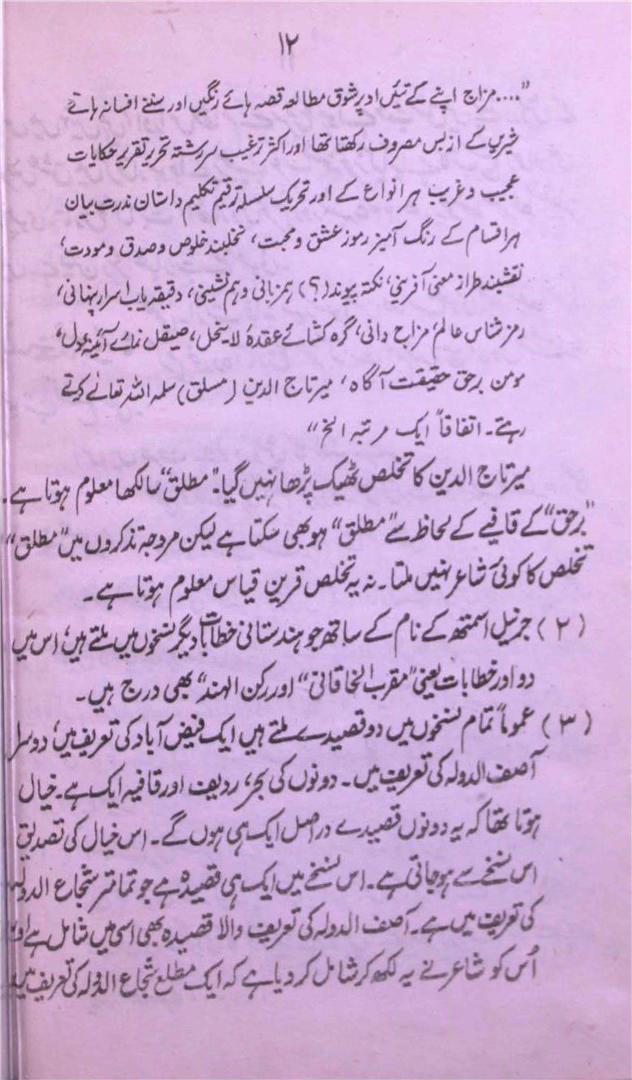 ۱۲
"....مزاج اپنے کے تئیں اوپر شوق مطالعہ قصہ ہائے رنگیں اور سننے افسانہ ہائے
شیریں کے از بس مصروف رکھتا تھا اور اکثر ترغیب سر رشتہ تحریر تقریر حکایات
عجیب و غریب ہر انواع کے اور تحریک سلسلہ ترقیم تکلیم داستان ندرت بیان
ہر اقسام کے رنگ آمیز رموز عشق و محبت، نخلبند خلوص و صدق و مودت،
نقشبند طراز معنی آفرینی، نکتہ پیوند (؟) ہمزبانی و ہم نشینی، دقیقہ یاب اسرار پنہانی،
رمز شناس عالم مزاج دانی، گرہ کشائے عقدۂ لا ینحل، صیقل نمائے آئینۂ دل،
مومن برحق حقیقت آگاہ، میر تاج الدین (مسلق) سلمہ اللہ تعالےٰ کرتے
رہتے۔ اتفاقاً ایک مرتبہ الخ"
میر تاج الدین کا تخلص ٹھیک پڑھا نہیں گیا۔ "مطلق" سا لکھا معلوم ہوتا ہے۔
"برحق" کے قافیے کے لحاظ سے "مطلق" ہو بھی سکتا ہے لیکن مروجہ تذکروں میں "مطلق"
تخلص کا کوئی شاعر نہیں ملتا۔ نہ یہ تخلص قرین قیاس معلوم ہوتا ہے۔
(۲) جرنیل اسمتھ کے نام کے ساتھ جو ہندستانی خطابات دیگر نسخوں میں ملتے ہیں، اس میں
دو اور خطابات یعنی "مقرب الخاقانی" اور "رکن الہند" بھی درج ہیں۔
(۳) عموماً تمام نسخوں میں دو قصیدے ملتے ہیں ایک فیض آباد کی تعریف میں، دوسرا
آصف الدولہ کی تعریف میں۔ دونوں کی بحر، ردیف اور قافیہ ایک ہے۔ خیال
ہوتا تھا کہ یہ دونوں قصیدے دراصل ایک ہی ہوں گے۔ اس خیال کی تصدیق
اس نسخے سے ہو جاتی ہے۔ اس نسخے میں ایک ہی قصیدہ ہے جو تمامتر شجاع الدولہ
کی تعریف میں ہے۔ آصف الدولہ کی تعریف والا قصیدہ بھی اسی میں شامل ہے اور
اُس کو شاعر نے یہ لکھ کر شامل کر دیا ہے کہ ایک مطلع شجاع الدولہ کی تعریف میں